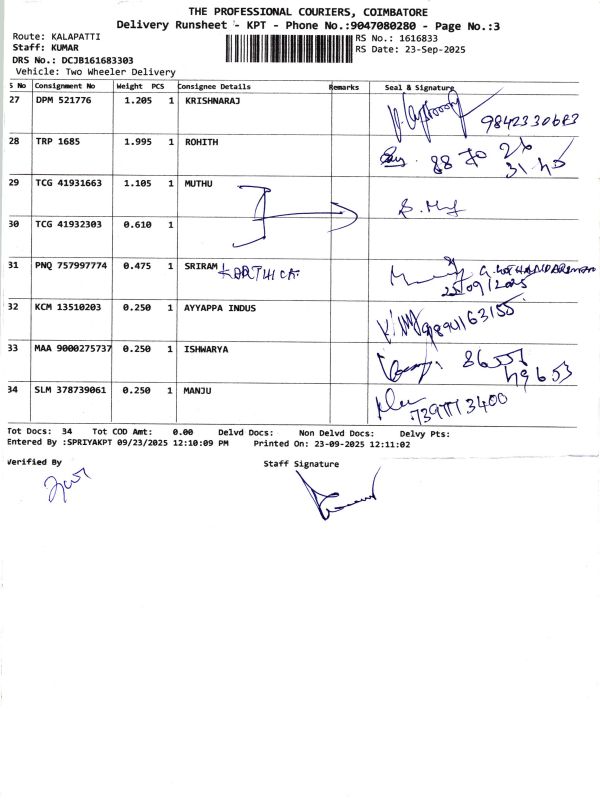 THE PROFESSIONAL COURIERS, COIMBATORE
Delivery Runsheet - KPT - Phone No.:9047080280 - Page No.:3
Route: KALAPATTI
RS No.: 1616833
Staff: KUMAR
RS Date: 23-Sep-2025
DRS No.: DCJB161683303
Vehicle: Two Wheeler Delivery
S No Consignment No Weight PCS Consignee Details Remarks Seal & Signature
27 DPM 521776 1.205 1 KRISHNARAJ
9842330683
28 TRP 1685 1.995 1 ROHITH
88 70 26
31 45
29 TCG 41931663 1.105 1 MUTHU
30 TCG 41932303 0.610 1
31 PNQ 757997774 0.475 1 SRIRAM KARTHICA
25/09/2025
32 KCM 13510203 0.250 1 AYYAPPA INDUS
33 MAA 9000275737 0.250 1 ISHWARYA
34 SLM 378739061 0.250 1 MANJU
Tot Docs: 34 Tot COD Amt: 0.00 Delvd Docs: Non Delvd Docs: Delvy Pts:
Entered By :SPRIYAKPT 09/23/2025 12:10:09 PM Printed On: 23-09-2025 12:11:02
Verified By Staff Signature